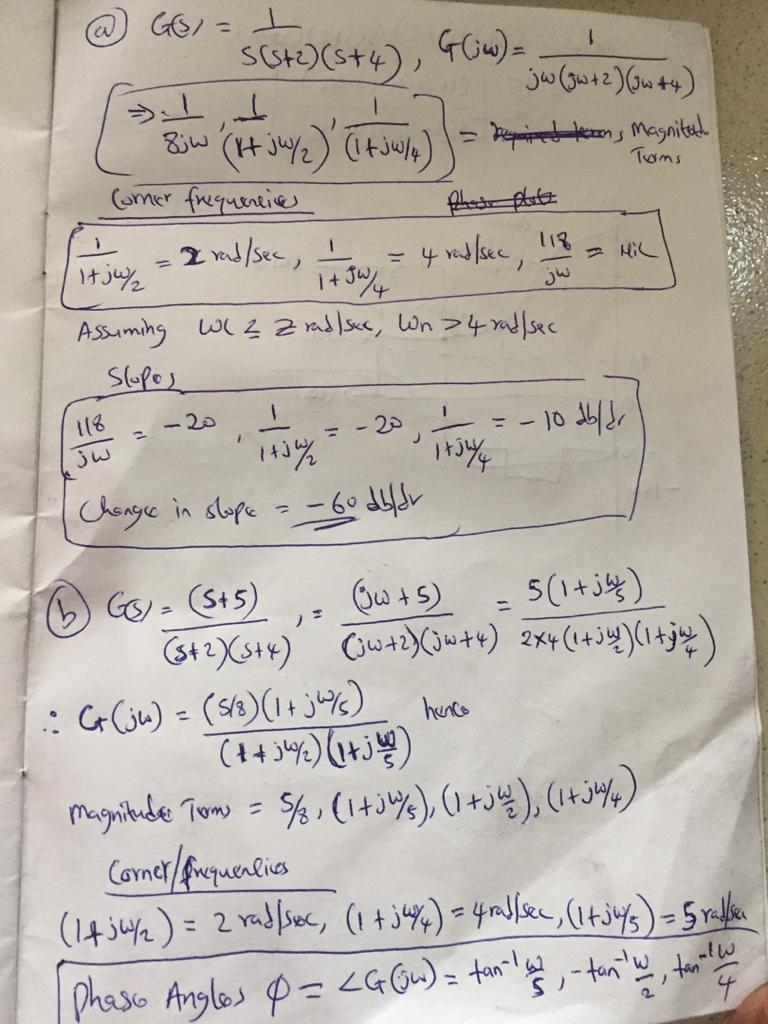 (a) G(s) = 1/(s(s+2)(s+4)), G(jω) = 1/(jω(jω+2)(jω+4))
⇒ 1/(8jω), 1/(1+jω/2), 1/(1+jω/4) = Magnitude Terms
Corner frequencies
1/(1+jω/2) = 2 rad/sec, 1/(1+jω/4) = 4 rad/sec, (1/8)/(jω) = Nil
Assuming ωl ≤ 2 rad/sec, ωn > 4 rad/sec
Slopes
(1/8)/(jω) = -20, 1/(1+jω/2) = -20, 1/(1+jω/4) = -10 db/dr
Changes in slope = -60 db/dr
(b) G(s) = (s+5)/((s+2)(s+4)), = (jω+5)/((jω+2)(jω+4)) = 5(1+jω/5)/(2×4(1+jω/2)(1+jω/4))
∴ G(jω) = (5/8)(1+jω/5)/((1+jω/2)(1+jω/5)) hence
Magnitude Terms = 5/8, (1+jω/5), (1+jω/2), (1+jω/4)
Corner/frequencies
(1+jω/2) = 2 rad/sec, (1+jω/4) = 4 rad/sec, (1+jω/5) = 5 rad/sec
Phase Angles φ = ∠G(jω) = tan⁻¹ ω/5, -tan⁻¹ ω/2, tan⁻¹ ω/4